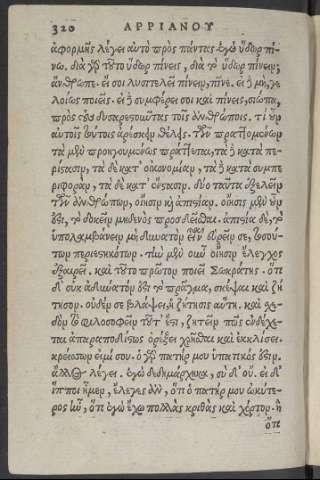 320 ΑΡΡΙΑΝΟΥ
ἀφορμῆς λέγει αὐτὸ πρὸς πάντας. ἐγὼ ὕδωρ πί-
νω. διὰ γὸ τοῦτο ὕδωρ πίνεις, διὰ τὸ ὕδωρ πίνειν;
ἄνθρωπε. εἴ σοι λυσιτελεῖ πίνειν, πῖνε. εἰ δὲ μὴ, γε-
λοίως ποιεῖς. εἰ δὲ συμφέρει σοι καὶ πίνεις, σιώπα,
πρὸς τοὺς δυσαρεστοῦντας τοῖς ἀνθρώποις. τί οὖν
αὐτοῖς τούτοις ἀρέσκειν θέλεις. Τῶν πραττομένων
τὰ μὲν προηγουμένως πράττεται, τὰ δὲ κατὰ πε-
ρίστασιν, τὰ δὲ κατ' οἰκονομίαν, τὰ δὲ κατὰ συμπε
ριφορὰν, τὰ δὲ κατ' ἔνστασιν. δύο ταῦτα ἐξελεῖν
τῶν ἀνθρώπων, οἴησιν καὶ ἀπιστίαν. οἴησις μὲν οὖν
ἐστι, τὸ δοκεῖν μηδενὸς προσδεῖσθαι. ἀπιστία δὲ, τὸ
ὑπολαμβάνειν μὴ δυνατὸν εἶναι εὐροεῖν σε, τοσού-
των περιεστηκότων. τὴν μὲν οὖν οἴησιν ἔλεγχος
ἐξαιρεῖ. καὶ τοῦτο πρῶτον ποιεῖ Σωκράτης. ὅτι
δ' οὐκ ἀδύνατόν ἐστι τὸ πρᾶγμα, σκέψαι καὶ ζή
τησον. οὐδέν σε βλάψει ἡ ζήτησις αὕτη. καὶ σχε-
δὸν τὸ φιλοσοφεῖν τοῦτ' ἔστι, ζητεῖν πῶς ἐνδέχε-
ται ἀπαραποδίστως ὀρέξει χρῆσθαι καὶ ἐκκλίσει.
κρείσσων εἰμί σου. ὁ γὸ πατήρ μου ὑπατικός ἐστιν.
ἄλλος λέγει. ἐγὼ δεδημάρχηκα, σὺ δ' οὔ. εἰ δ'
ἵπποι ἦμεν, ἔλεγες ἂν, ὅτι ὁ πατήρ μου ὠκύτε-
ρος ἦν, ὅτι ἐγὼ ἔχω πολλὰς κριθὰς καὶ χόρτον. ἢ
ὅτι